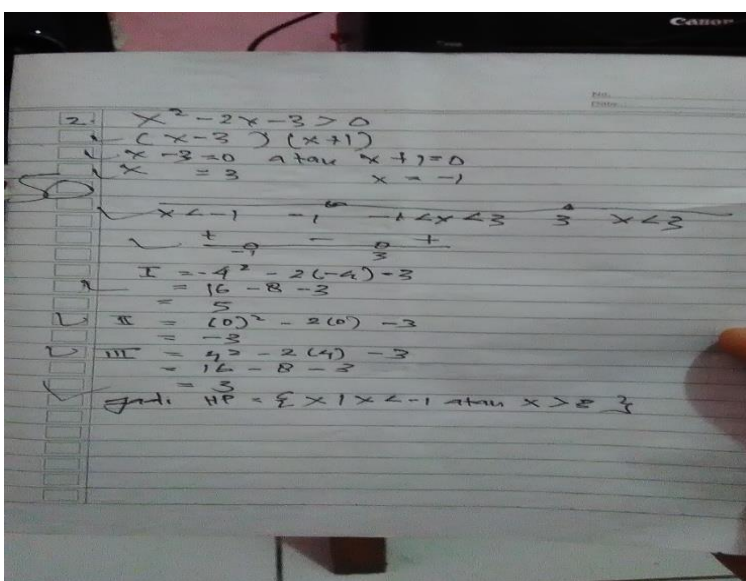 Canon
No.
Date
2. x² - 2x - 3 > 0
(x-3)(x+1)
x - 3 = 0 atau x + 1 = 0
x = 3 x = -1
x < -1 -1 -1 < x < 3 3 x < 3
+ - +
-1 3
I = -4² - 2(-4) - 3
= 16 - 8 - 3
= 5
II = (0)² - 2(0) - 3
= -3
III = 4² - 2(4) - 3
= 16 - 8 - 3
= 3
Jadi HP = { x | x < -1 atau x > 3 }